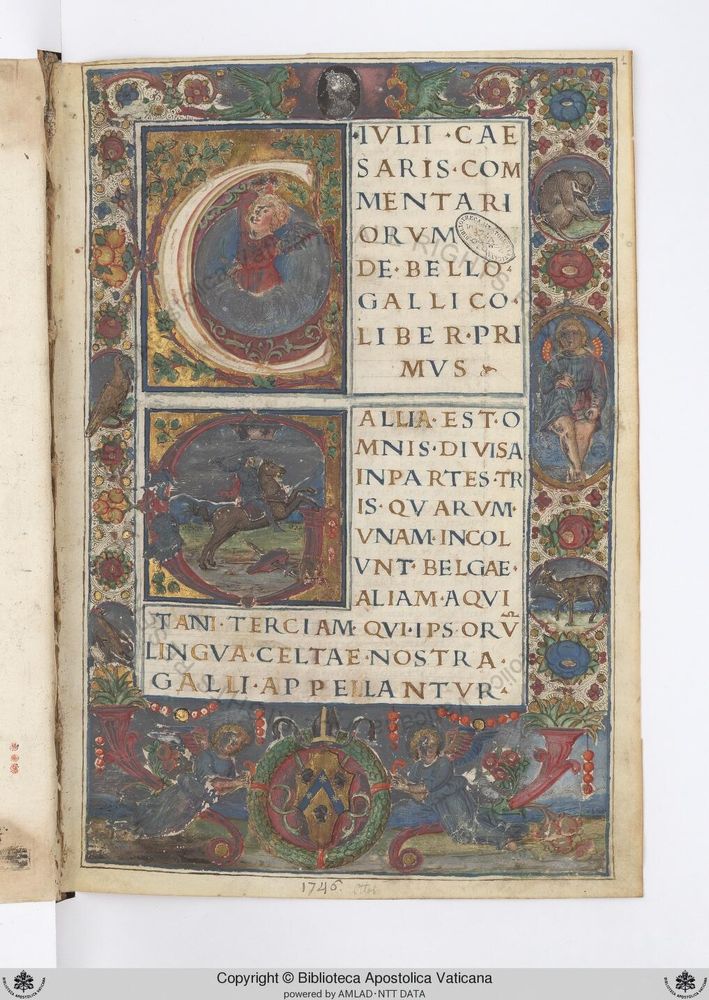 C IVLII · CAE
SARIS · COM
MENTARI
ORVM
DE · BELLO ·
GALLICO ·
LIBER · PRI
MVS
G ALLIA · EST · O
MNIS · DIVISA
INPARTES · TR
IS · QVARVM ·
VNAM · INCOL
VNT · BELGAE ·
ALIAM · AQVI
TANI · TERCIAM · QVI · IPSORŪ
LINGVA · CELTAE · NOSTRA ·
GALLI · APPELLANTVR ·
1746.
Copyright © Biblioteca Apostolica Vaticana
powered by AMLAD · NTT DATA